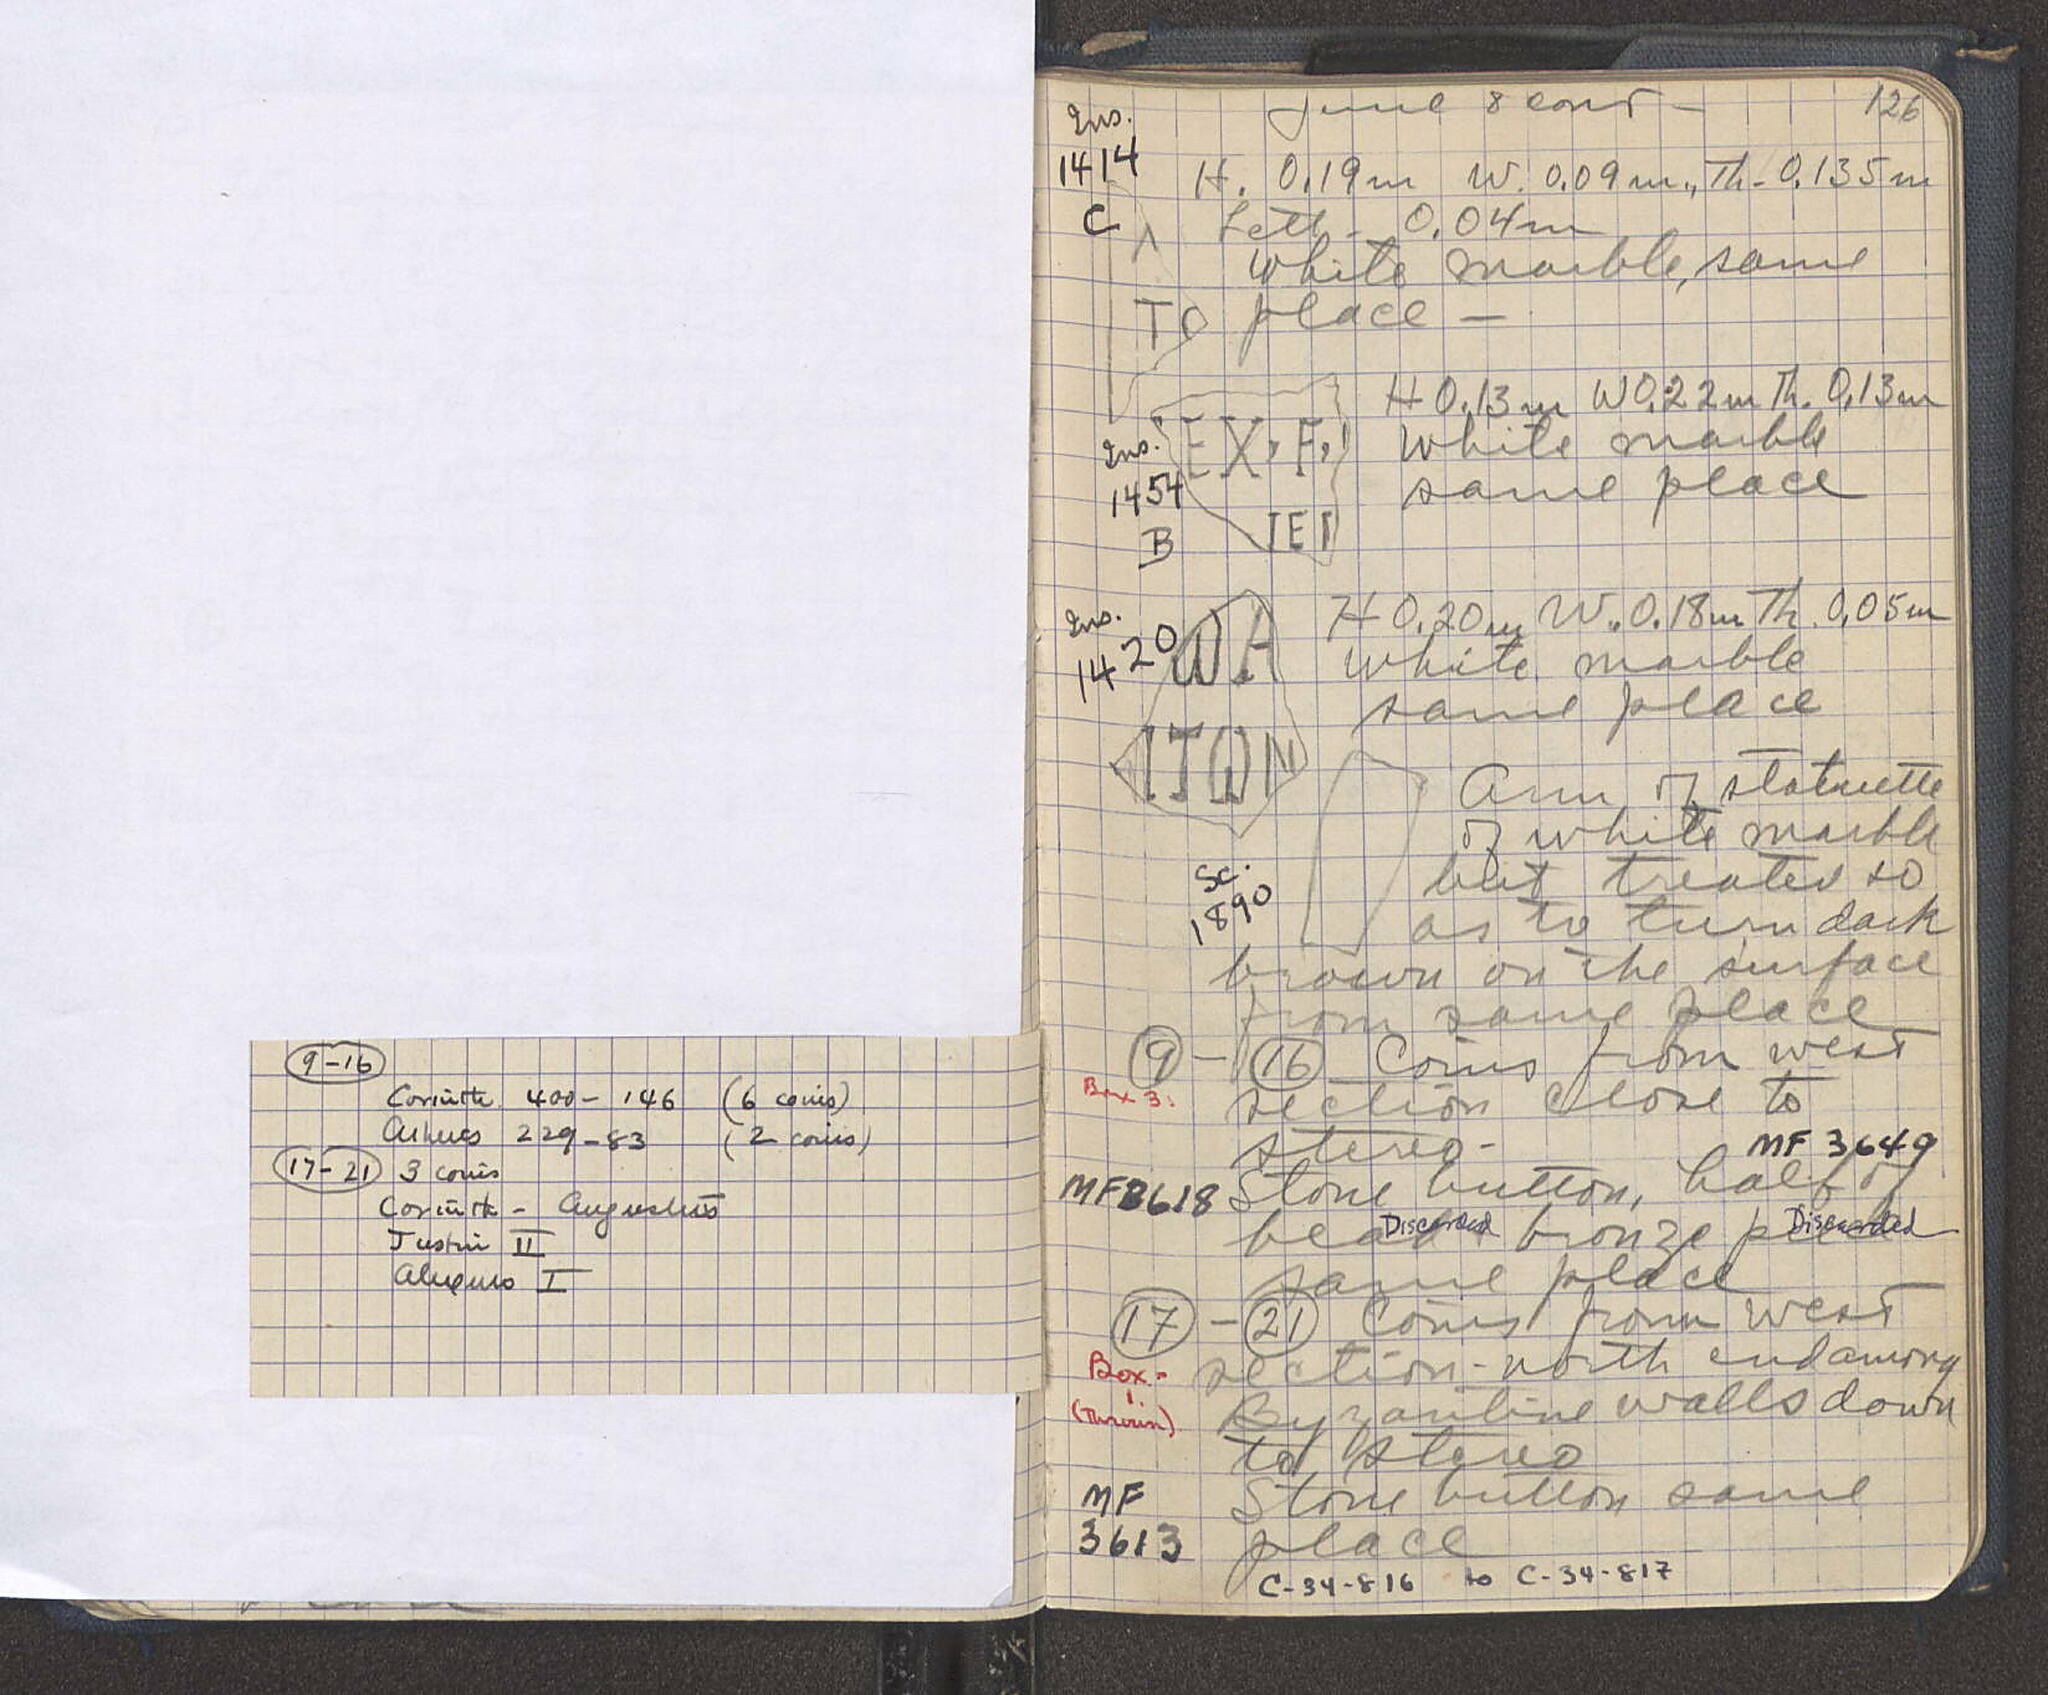 9-16
Corinth 400-146 (6 coins)
Athens 229-83 (2 coins)
17-21 3 coins
Corinth - Augustus
Justin II
Alexius I
126
June 8 cont -
Ins.
1414
C
H. 0.19m W. 0.09m., Th. 0.135m
Lett. 0.04m
white marble, same
place -
Λ
TO
H 0.13m W 0.22m Th. 0.13m
white marble
same place
Ins.
1454
B
EX, F,
IEI
H 0.20m W. 0.18m Th. 0.05m
white marble
same place
Ins.
1420
WA
ITWN
Arm of statuette
of white marble
but treated so
as to turn dark
brown on the surface
from same place
Sc.
1890
9 - 16 Coins from west
Box 3:
section close to
stereo -
MF 3649
MF 3618 Stone button, half of
bead Discarded bronze piece Discarded
same place
17 - 21 Coins from west
Box -
1
(Thrown)
section - north end among
Byzantine walls down
to stereo
MF
3613
Stone button same
place
C-34-816 to C-34-817